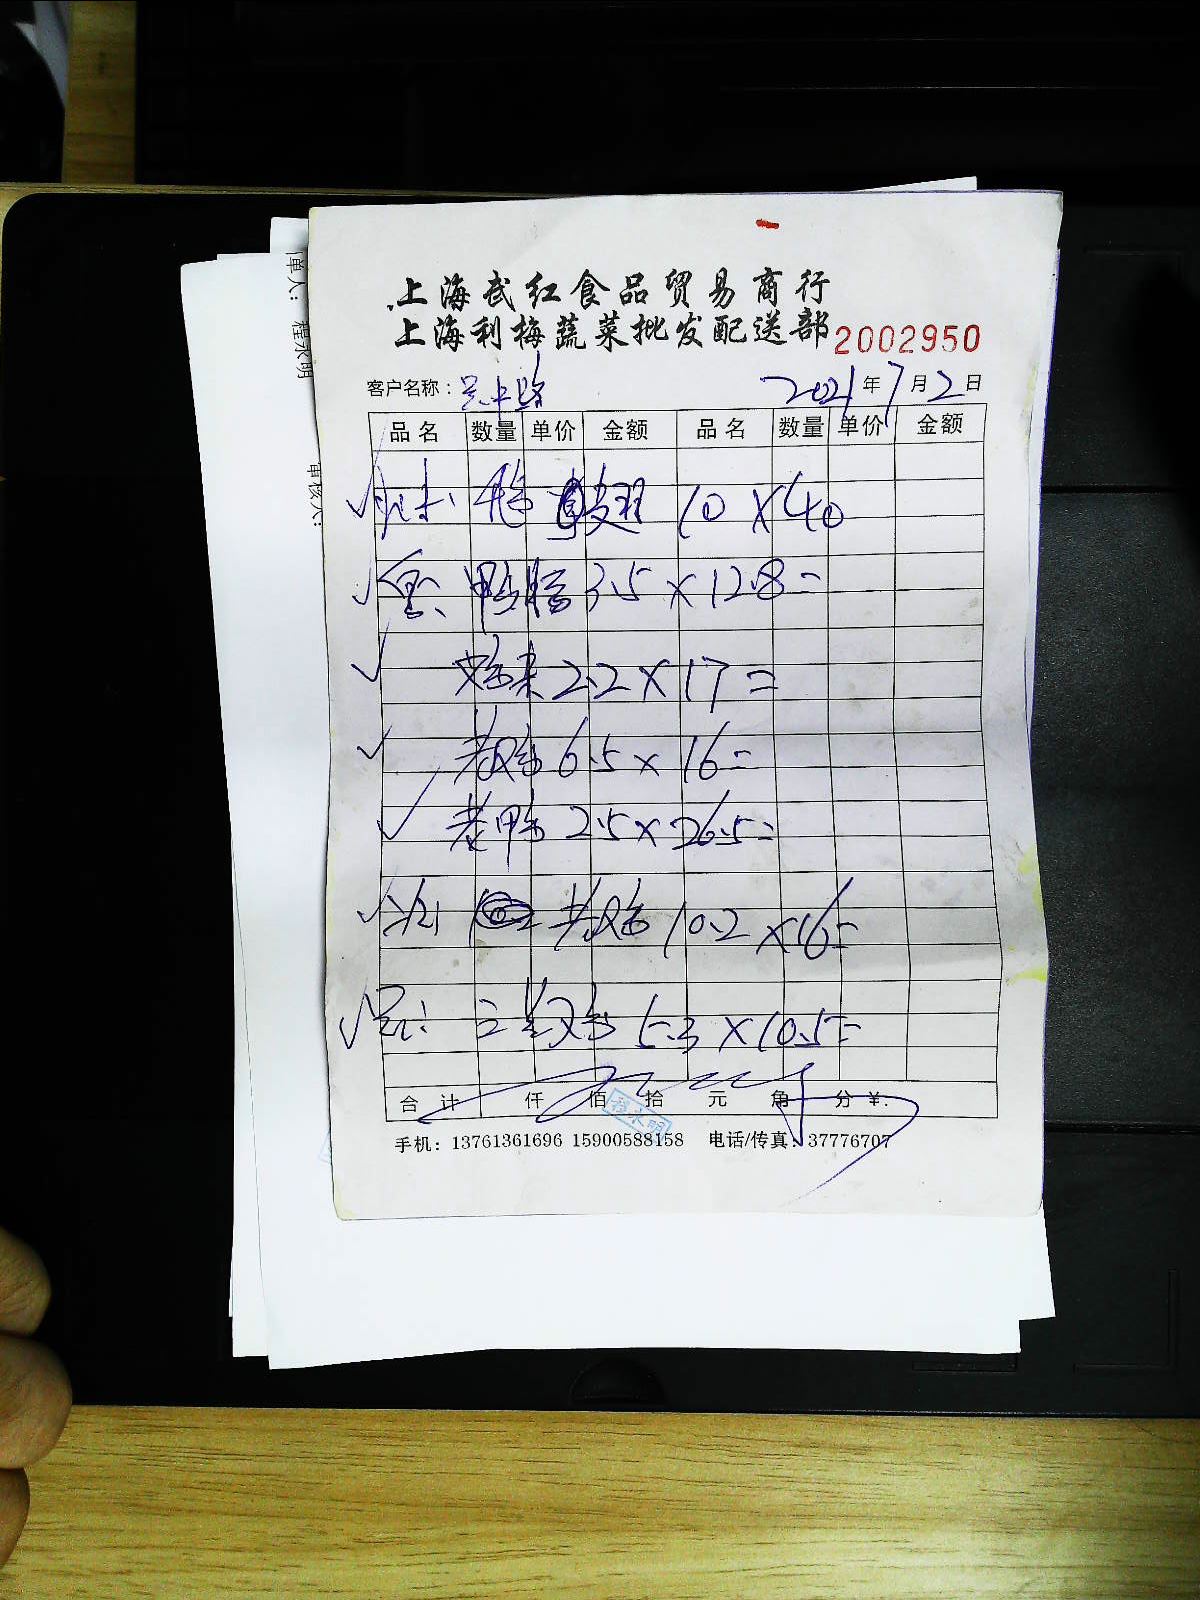 上海武红食品贸易商行
上海利梅蔬菜批发配送部 2002950
客户名称： 2021年7月2日
品名 数量 单价 金额 品名 数量 单价 金额
翅 10×40
鸭 3.5×12.8=
2.2×17=
老鸡 6.5×16=
老鸭 2.5×26.5=
老鸡 10.2×16=
5.3×10.5=
合计 仟 佰 拾 元 角 分 ¥：
程永明
手机：13761361696 15900588158 电话/传真：37776707
单人： 程永明
审核人：